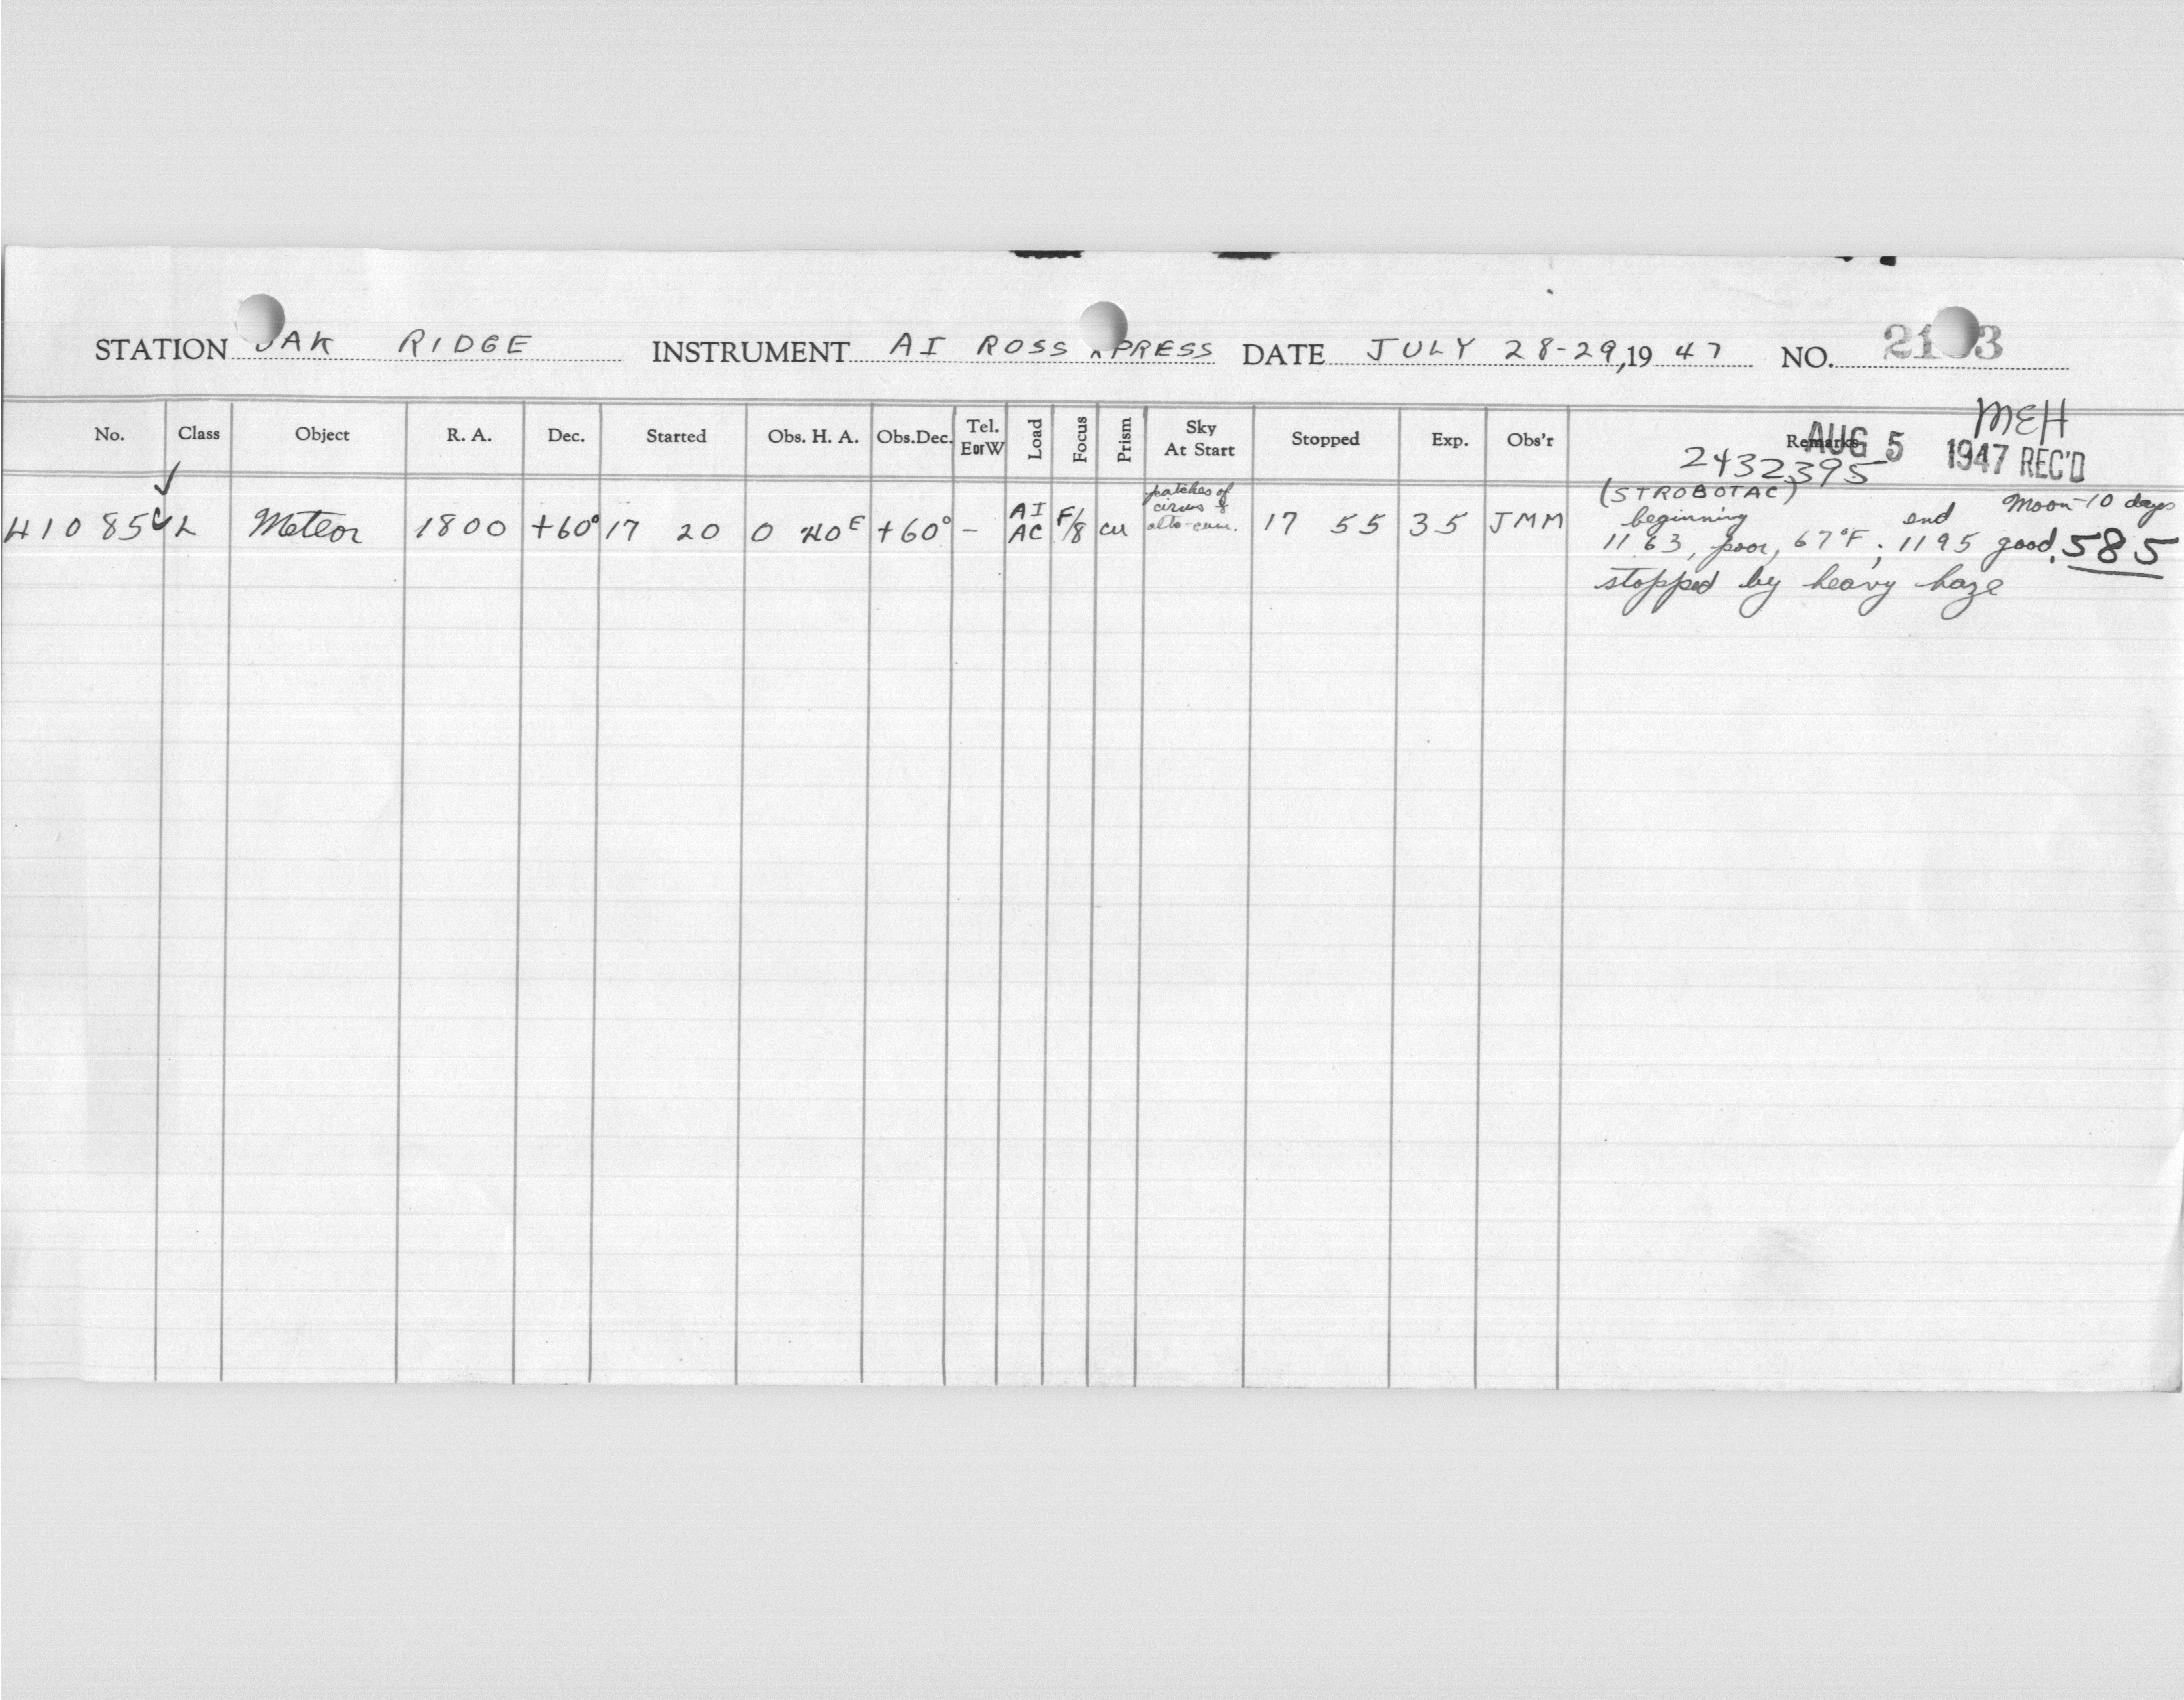 STATION OAK RIDGE INSTRUMENT AI ROSS XPRESS DATE JULY 28-29, 19 47 NO. 21 3
No. Class Object R. A. Dec. Started Obs. H. A. Obs.Dec. Tel. E or W Load Focus Prism Sky At Start Stopped Exp. Obs'r Remarks
MEH
AUG 5 1947 REC'D
2432395
41085 L Meteor 1800 +60° 17 20 0 40 E +60° - AI AC F/8 patches of cirrus & alto-cum. 17 55 35 JMM (STROBOTAC) Moon-10 days
beginning end
1163, poor, 67°F; 1195 good. 585
stopped by heavy haze